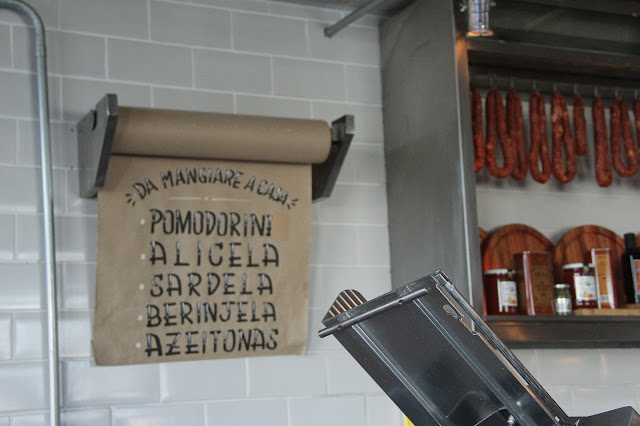 DA MANGIARE A CASA
POMODORINI
ALICELA
SARDELA
BERINJELA
AZEITONAS